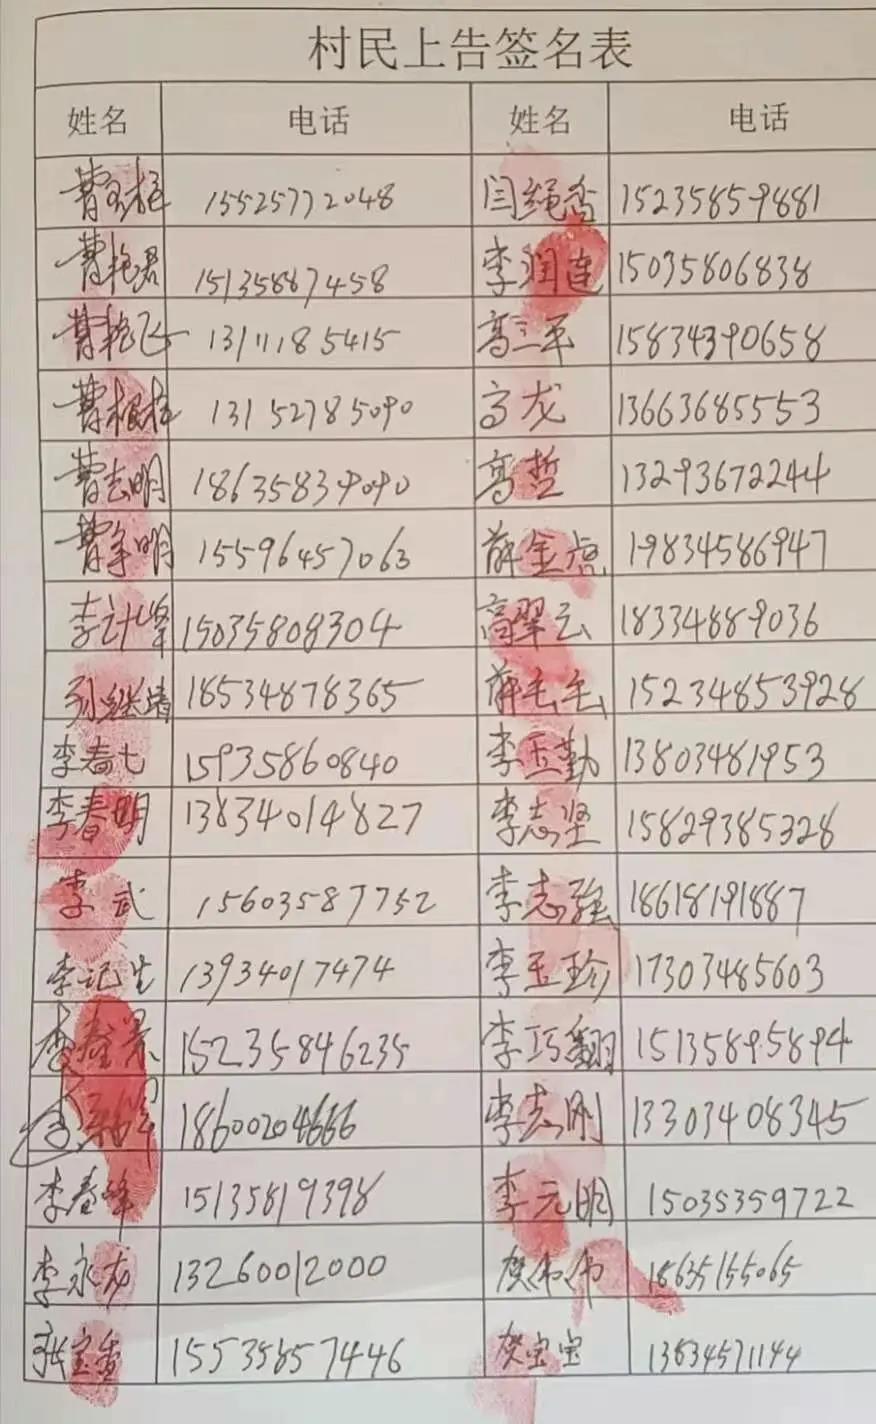 村民上告签名表
姓名 电话 姓名 电话
曹玉柱 15525772048 闫绳香 15235859881
曹艳君 15135887458 李润连 15035806838
曹艳飞 13111185415 高三平 15834390658
曹根柱 13152785090 高龙 13663685553
曹志明 18635839090 高哲 13293672244
曹争明 15596457063 薛金虎 19834586947
李计峰 15035808304 高翠云 18334889036
孙继靖 18534878365 薛毛毛 15234853928
李春七 15935860840 李玉勤 13803481953
李春明 13834014827 李志坚 15829385328
李武 15603587752 李志强 18618191887
李记生 13934017474 李玉珍 17303485603
李春景 15235846235 李巧翻 15135895894
李 18600204666 李志刚 13303408345
李春峰 15135819398 李元明 15035359722
李永龙 13260012000 贺伟伟 18635155065
张宝香 15535857446 贺宝宝 13834571144